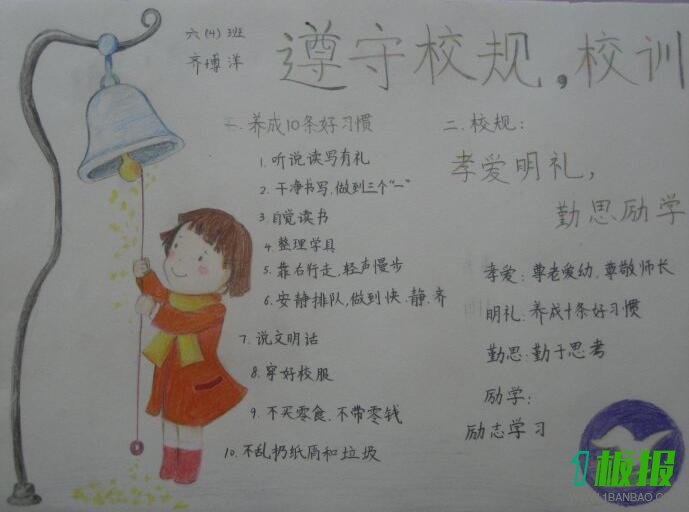 六(4)班
齐博洋
遵守校规,校训
一.养成10条好习惯
1.听说读写有礼
2.干净书写,做到三个"一"
3.自觉读书
4.整理学具
5.靠右行走,轻声慢步
6.安静排队,做到快.静.齐
7.说文明话
8.穿好校服
9.不买零食,不带零钱
10.不乱扔纸屑和垃圾
二.校规:
孝爱明礼,
勤思励学
孝爱:尊老爱幼.尊敬师长
明礼.养成十条好习惯
勤思:勤于思考
励学:
励志学习
1板报
WWW.1BANBAO.COM